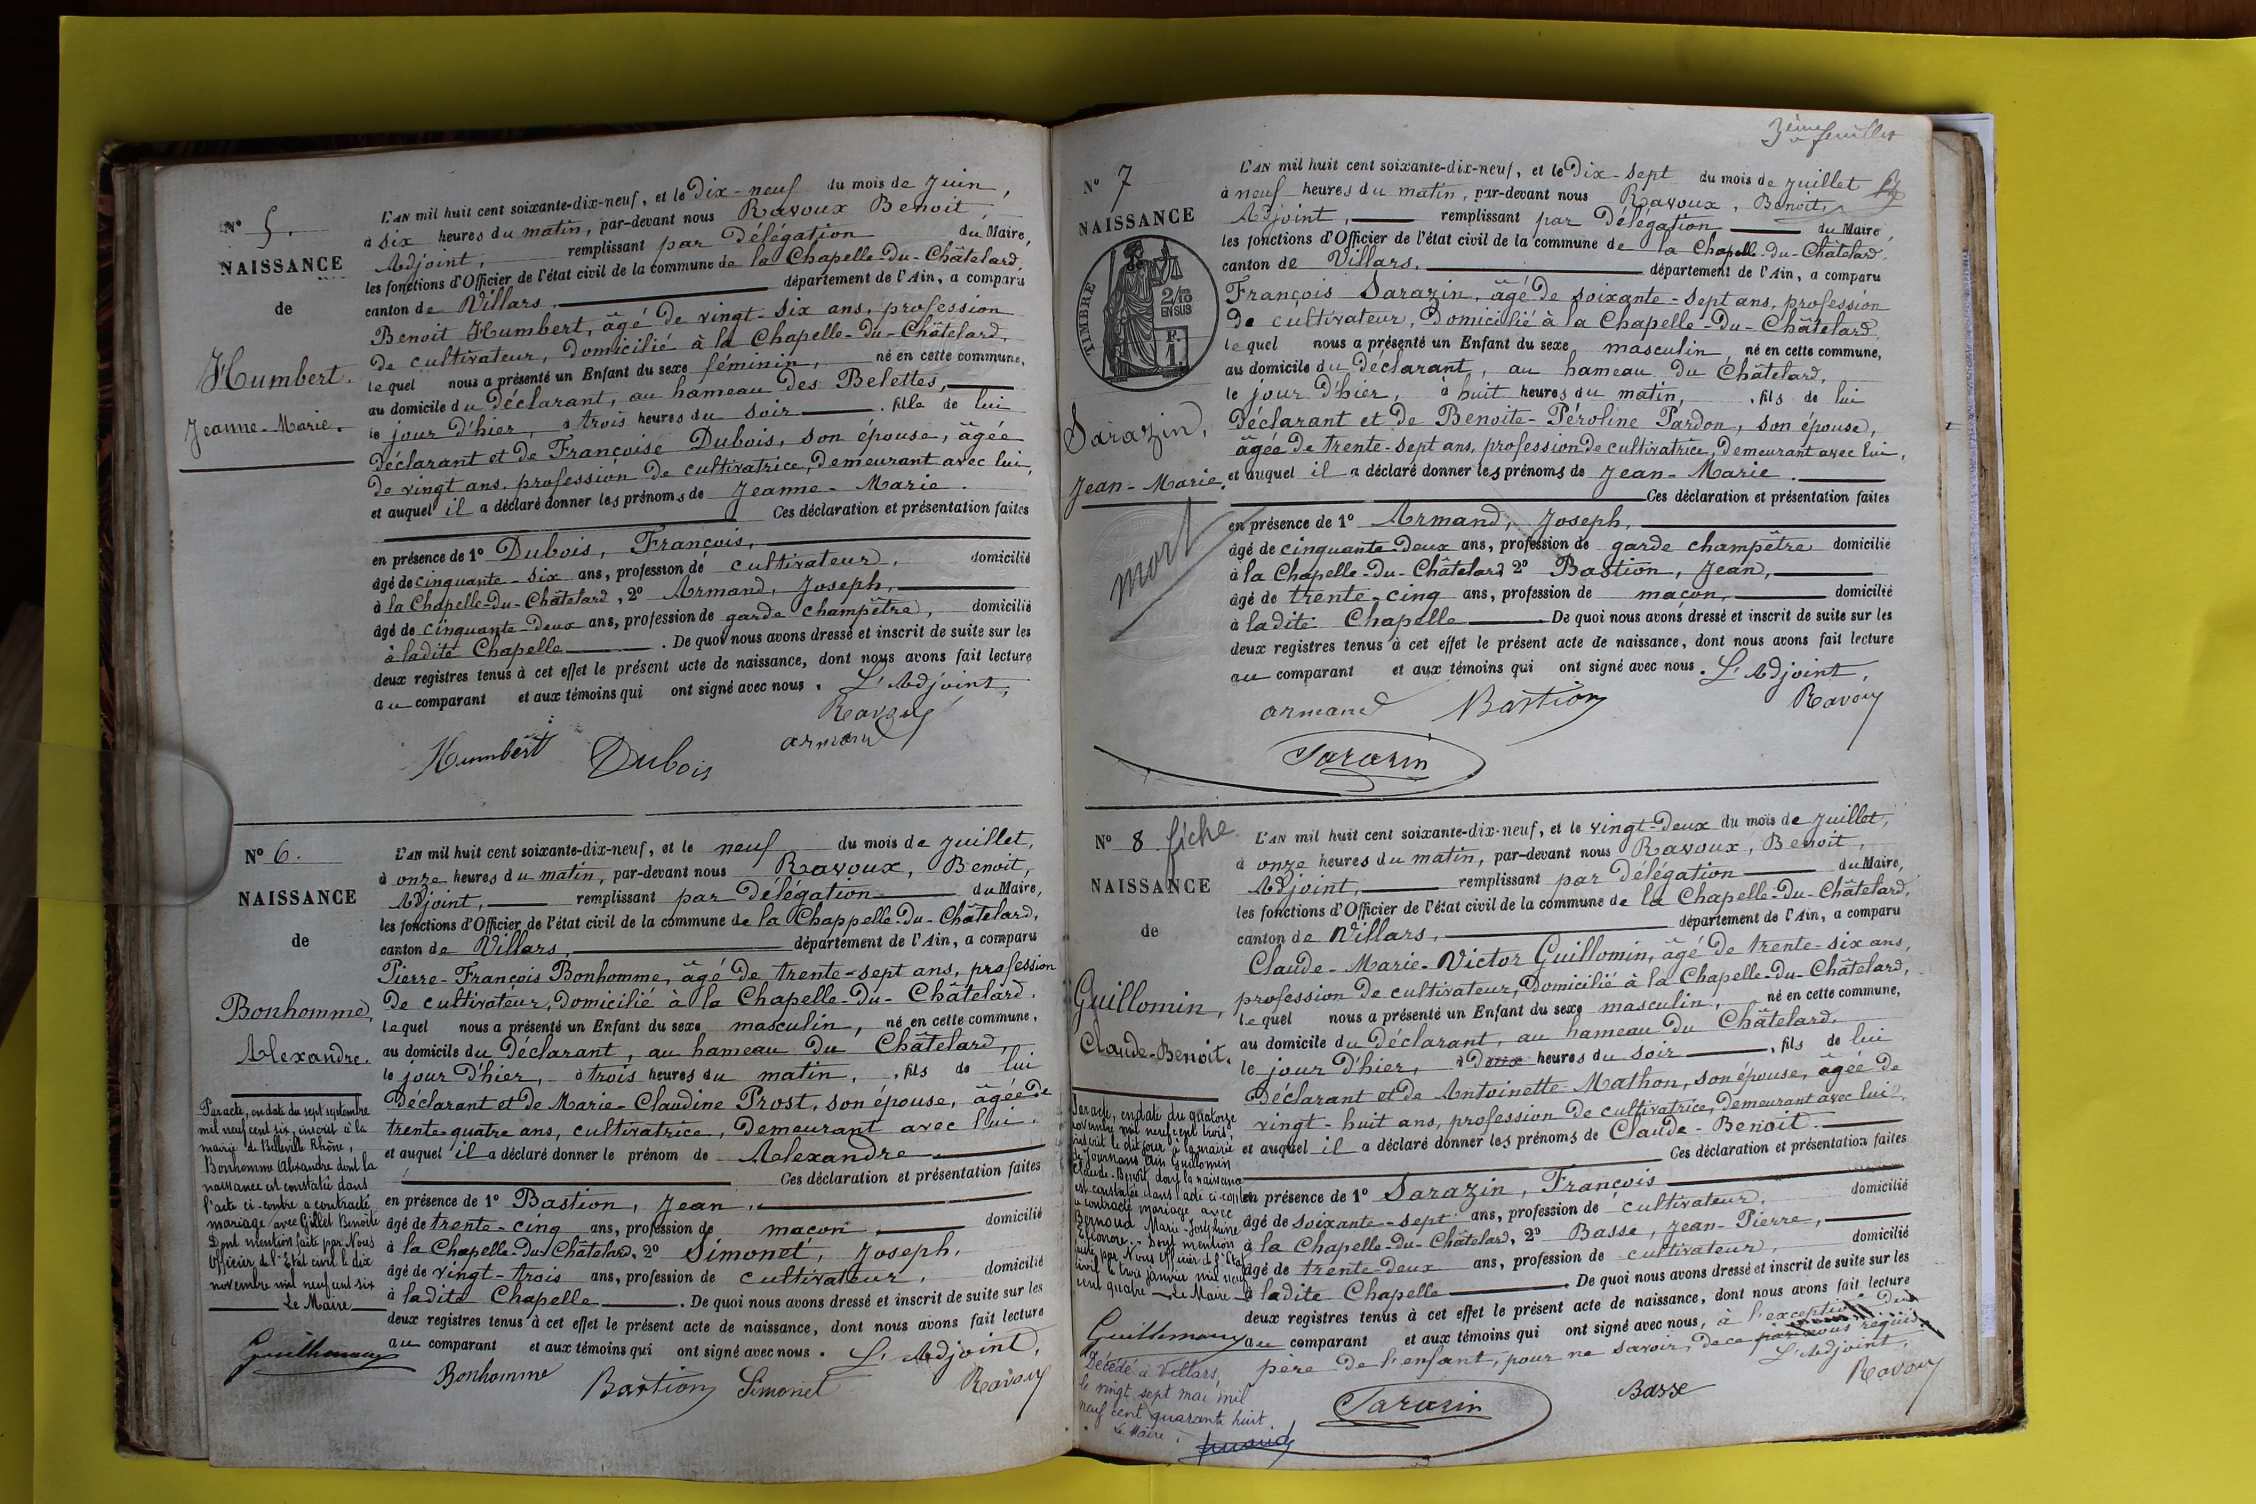 N° 5.
NAISSANCE
de
Humbert.
Jeanne-Marie.
L'AN mil huit cent soixante-dix-neuf, et le Dix-neuf du mois de Juin,
à six heures du matin, par-devant nous Ravoux Benoit,
Adjoint, remplissant par Délégation du Maire,
les fonctions d'Officier de l'état civil de la commune de la Chapelle-du-Châtelard,
canton de Villars. département de l'Ain, a comparu
Benoit Humbert, âgé de vingt-six ans, profession
de cultivateur, domicilié à la Chapelle-du-Châtelard,
lequel nous a présenté un Enfant du sexe féminin, né en cette commune,
au domicile du Déclarant, au hameau des Belettes,
le jour d'hier, à trois heures du soir, fille de lui
Déclarant et de Françoise Dubois, son épouse, âgée
de vingt ans, profession de cultivatrice, demeurant avec lui,
et auquel il a déclaré donner les prénoms de Jeanne-Marie.
Ces déclaration et présentation faites
en présence de 1° Dubois, François,
âgé de cinquante-six ans, profession de cultivateur, domicilié
à la Chapelle-du-Châtelard, 2° Armand, Joseph,
âgé de cinquante-deux ans, profession de garde champêtre, domicilié
à ladite Chapelle. De quoi nous avons dressé et inscrit de suite sur les
deux registres tenus à cet effet le présent acte de naissance, dont nous avons fait lecture
au comparant et aux témoins qui ont signé avec nous. L'Adjoint,
Ravoux
Humbert Dubois armand
N° 6.
NAISSANCE
de
Bonhomme,
Alexandre.
Par acte, en date du sept septembre
mil neuf cent six, inscrit à la
mairie de Belleville Rhône,
Bonhomme Alexandre dont la
naissance est constatée dans
l'acte ci-contre a contracté
mariage avec Gillet Benoite
Dont mention faite par Nous
Officier de l'Etat civil le dix
novembre mil neuf cent six
Le Maire
L'AN mil huit cent soixante-dix-neuf, et le neuf du mois de Juillet,
à onze heures du matin, par-devant nous Ravoux, Benoit,
Adjoint, remplissant par Délégation du Maire,
les fonctions d'Officier de l'état civil de la commune de la Chappelle-du-Châtelard,
canton de Villars, département de l'Ain, a comparu
Pierre-François Bonhomme, âgé de trente-sept ans, profession
de cultivateur, domicilié à la Chapelle-du-Châtelard.
lequel nous a présenté un Enfant du sexe masculin, né en cette commune,
au domicile du Déclarant, au hameau du Châtelard,
le jour d'hier, à trois heures du matin, fils de lui
Déclarant et de Marie-Claudine Prost, son épouse, âgée de
trente quatre ans, cultivatrice, demeurant avec lui.
et auquel il a déclaré donner le prénom de Alexandre
Ces déclaration et présentation faites
en présence de 1° Bastion, Jean.
âgé de trente-cinq ans, profession de maçon domicilié
à la Chapelle-du-Châtelard, 2° Simonet, Joseph,
âgé de vingt-trois ans, profession de cultivateur, domicilié
à ladite Chapelle. De quoi nous avons dressé et inscrit de suite sur les
deux registres tenus à cet effet le présent acte de naissance, dont nous avons fait lecture
au comparant et aux témoins qui ont signé avec nous. L'Adjoint,
Bonhomme Bastion Simonet Ravoux
3ème feuillet
N° 7
NAISSANCE
TIMBRE
2/10
EN SUS
F.
1.
Sarazin,
Jean-Marie.
mort
L'AN mil huit cent soixante-dix-neuf, et le Dix-sept du mois de Juillet
à neuf heures du matin, par-devant nous Ravoux, Benoit,
Adjoint, remplissant par Délégation du Maire,
les fonctions d'Officier de l'état civil de la commune de la Chapelle-du-Châtelard,
canton de Villars. département de l'Ain, a comparu
François Sarazin, âgé de soixante-sept ans, profession
de cultivateur, domicilié à la Chapelle-du-Châtelard
lequel nous a présenté un Enfant du sexe masculin, né en cette commune,
au domicile du Déclarant, au hameau du Châtelard,
le jour d'hier, à huit heures du matin, fils de lui
Déclarant et de Benoite-Péroline Pardon, son épouse,
âgée de trente-sept ans, profession de cultivatrice, demeurant avec lui,
et auquel il a déclaré donner les prénoms de Jean-Marie.
Ces déclaration et présentation faites
en présence de 1° Armand, Joseph,
âgé de cinquante-deux ans, profession de garde champêtre domicilié
à la Chapelle-du-Châtelard 2° Bastion, Jean,
âgé de trente-cinq ans, profession de maçon, domicilié
à ladite Chapelle. De quoi nous avons dressé et inscrit de suite sur les
deux registres tenus à cet effet le présent acte de naissance, dont nous avons fait lecture
au comparant et aux témoins qui ont signé avec nous. L'Adjoint,
armand Bastion Ravoux
Sarazin
N° 8 fiche
NAISSANCE
de
Guillomin,
Claude-Benoit.
Par acte, en date du quatorze
novembre mil neuf cent trois,
inscrit le dit jour à la mairie
de Journans Ain Guillomin
Claude-Benoit dont la naissance
est constatée dans l'acte ci-contre
a contracté mariage avec
Bernoud Marie-Joséphine
Eléonore. Dont mention
faite par Nous Officier de l'Etat
civil le trois janvier mil neuf
cent quatre Le Maire
Décédé à Villars,
le vingt sept mai mil
neuf cent quarante huit.
Le Maire.
L'AN mil huit cent soixante-dix-neuf, et le vingt-deux du mois de Juillet,
à onze heures du matin, par-devant nous Ravoux, Benoit,
Adjoint, remplissant par Délégation du Maire,
les fonctions d'Officier de l'état civil de la commune de la Chapelle-du-Châtelard,
canton de Villars, département de l'Ain, a comparu
Claude-Marie-Victor Guillomin, âgé de trente-six ans,
profession de cultivateur, domicilié à la Chapelle-du-Châtelard,
lequel nous a présenté un Enfant du sexe masculin, né en cette commune,
au domicile du Déclarant, au hameau du Châtelard,
le jour d'hier, à Deux heures du soir, fils de lui
Déclarant et de Antoinette Mathon, son épouse, âgée de
vingt-huit ans, profession de cultivatrice, demeurant avec lui,
et auquel il a déclaré donner les prénoms de Claude-Benoit.
Ces déclaration et présentation faites
en présence de 1° Sarazin, François
âgé de soixante-sept ans, profession de cultivateur. domicilié
à la Chapelle-du-Châtelard, 2° Basse, Jean-Pierre,
âgé de trente-deux ans, profession de cultivateur, domicilié
à ladite Chapelle. De quoi nous avons dressé et inscrit de suite sur les
deux registres tenus à cet effet le présent acte de naissance, dont nous avons fait lecture
au comparant et aux témoins qui ont signé avec nous, à l'exception du
père de l'enfant, pour ne savoir, de ce par nous requis.
L'Adjoint,
Sarazin Basse Ravoux